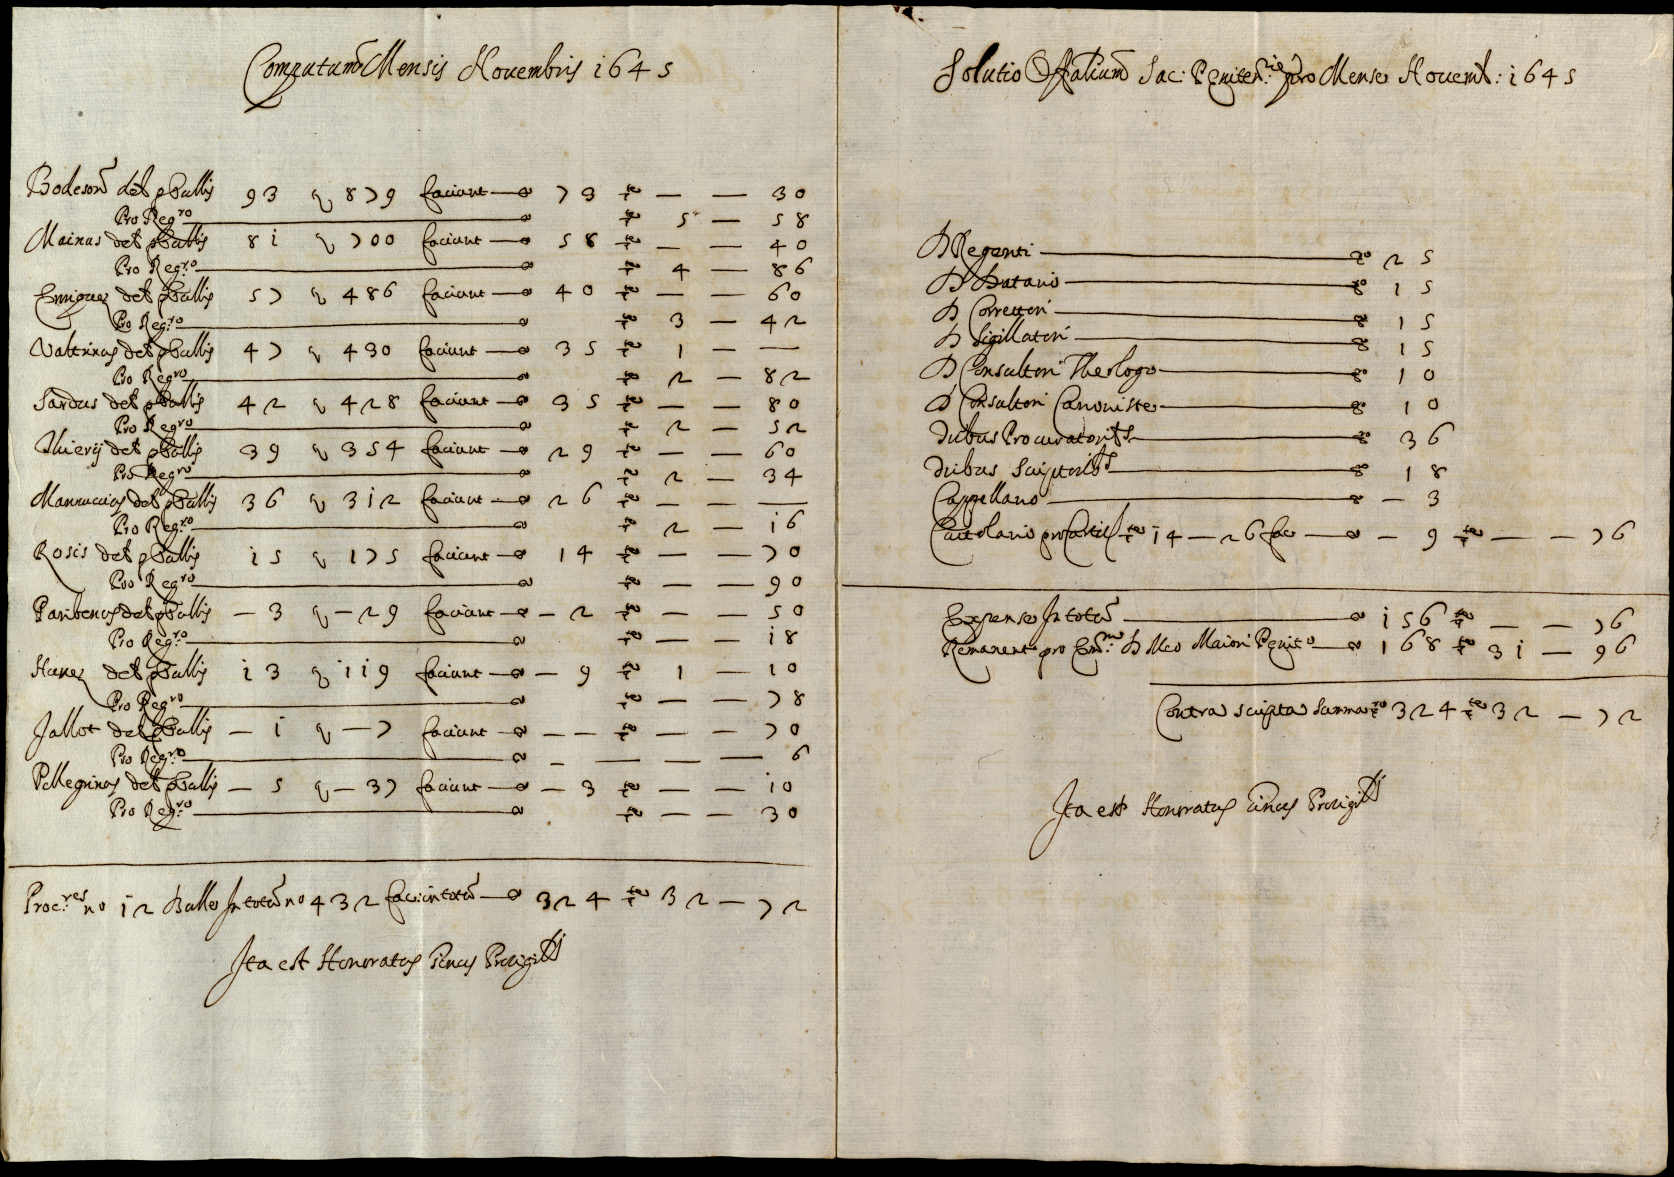 Computum Mensis Novembris 1645
Bodeson det p Bullis 93 q 879 faciunt — 73 — — 30
Pro Regro — 5 — 58
Mainus det p Bullis 81 q 700 faciunt — 58 — — 40
Pro Reg.ro — 4 — 86
Enriquez det p Bullis 57 q 486 faciunt — 40 — — 60
Pro Reg.ro — 3 — 42
Valtrinus det p Bullis 47 q 430 faciunt — 35 1 — —
Pro Regro — 2 — 82
Sardus det p Bullis 42 q 428 faciunt — 35 — — 80
Pro Regro — 2 — 52
Thierij det p Bullis 39 q 354 faciunt — 29 — — 60
Pro Regro — 2 — 34
Mannuccius det p Bullis 36 q 312 faciunt — 26 — — —
Pro Reg.ro — 2 — 16
Rosis det p Bullis 15 q 175 faciunt — 14 — — 70
Pro Regro — — — 90
Paribenus det p Bullis — 3 q — 29 faciunt — — 2 — — 50
Pro Reg.ro — — — 18
Hunez det p Bullis 13 q 119 faciunt — — 9 1 — 10
Pro Regro — — — 78
Jallot det p Bullis — 1 q — 7 faciunt — — — — — 70
Pro Reg.ro — — — — 6
Pellegrinus det p Bullis — 5 q — 37 faciunt — — 3 — — 10
Pro Reg.ro — — — 30
Proc.res no 12 Bulle In totum no 432 fac: in totum — 324 32 — 72
Ita est Honoratus
Solutio Offalium Sac: Peniten:rie pro Mense Novemb: 1645
D Regenti — 25
D Datario — 15
D Correttori — 15
D Sigillatori — 15
D Consultori Theologo — 10
D Consultori Canoniste — 10
Dubus Procuratoribs — 36
Dubus Scriptoribs — 18
Cappellano — — 3
14 — 26 fac — — 9 — — 76
Expense In totum — 156 — — 76
Remanent pro Em.mo D Meo Maiori Penit.o — 168 31 — 96
Contra scripta summa 324 32 — 72
Ita est Honoratus